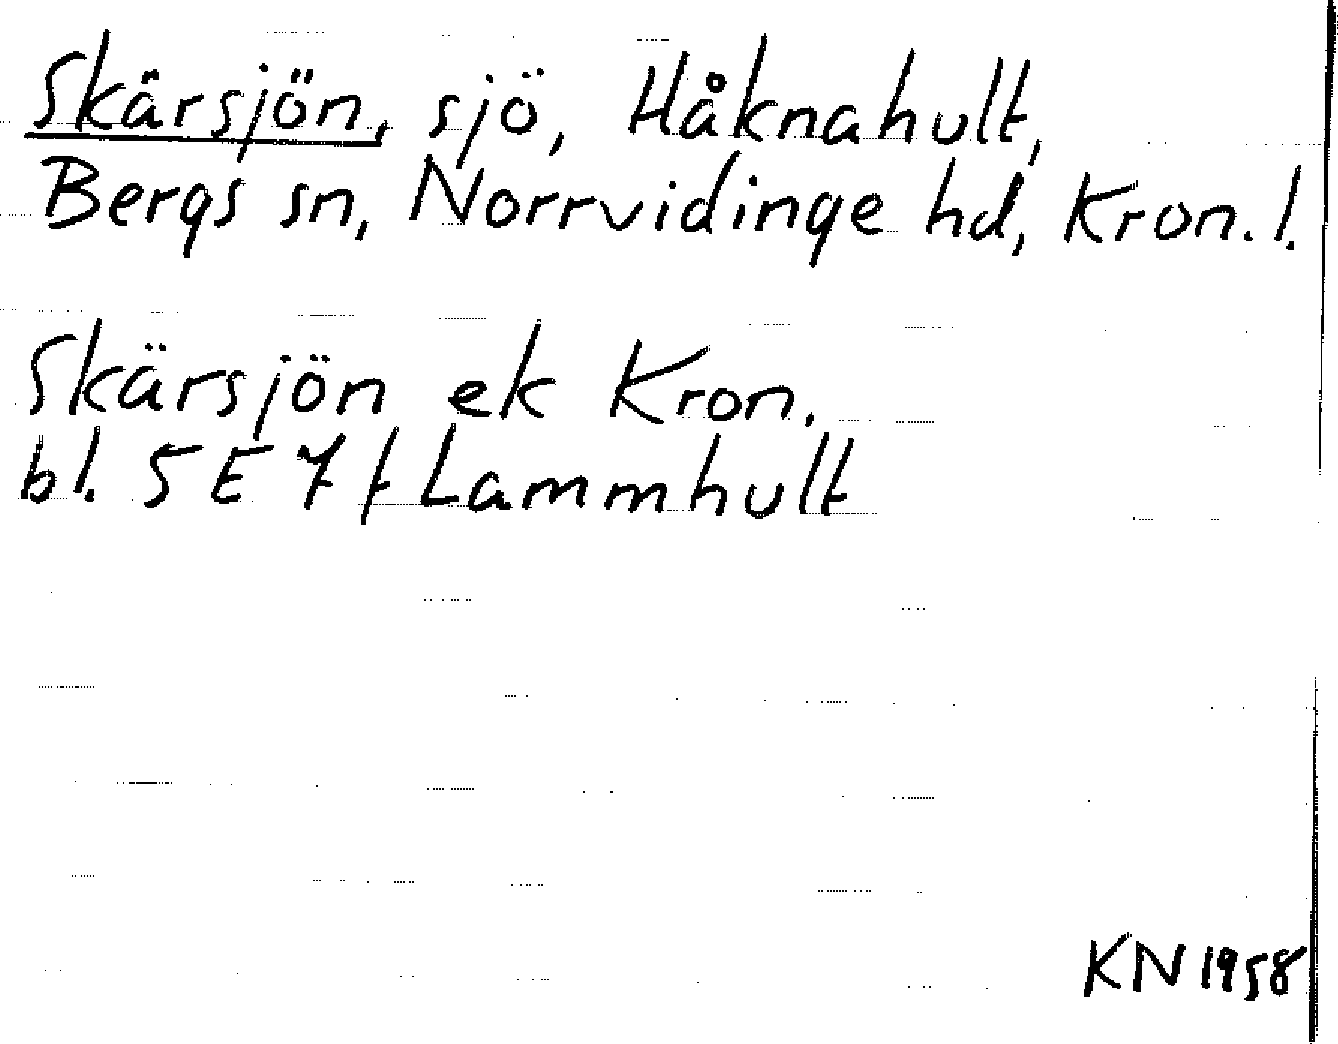 Skärsjön, sjö, Håknahult,
Bergs sn, Norrvidinge hd, Kron. l.
Skärsjön ek Kron.
bl. 5 E 7 f Lammhult
KN 1958